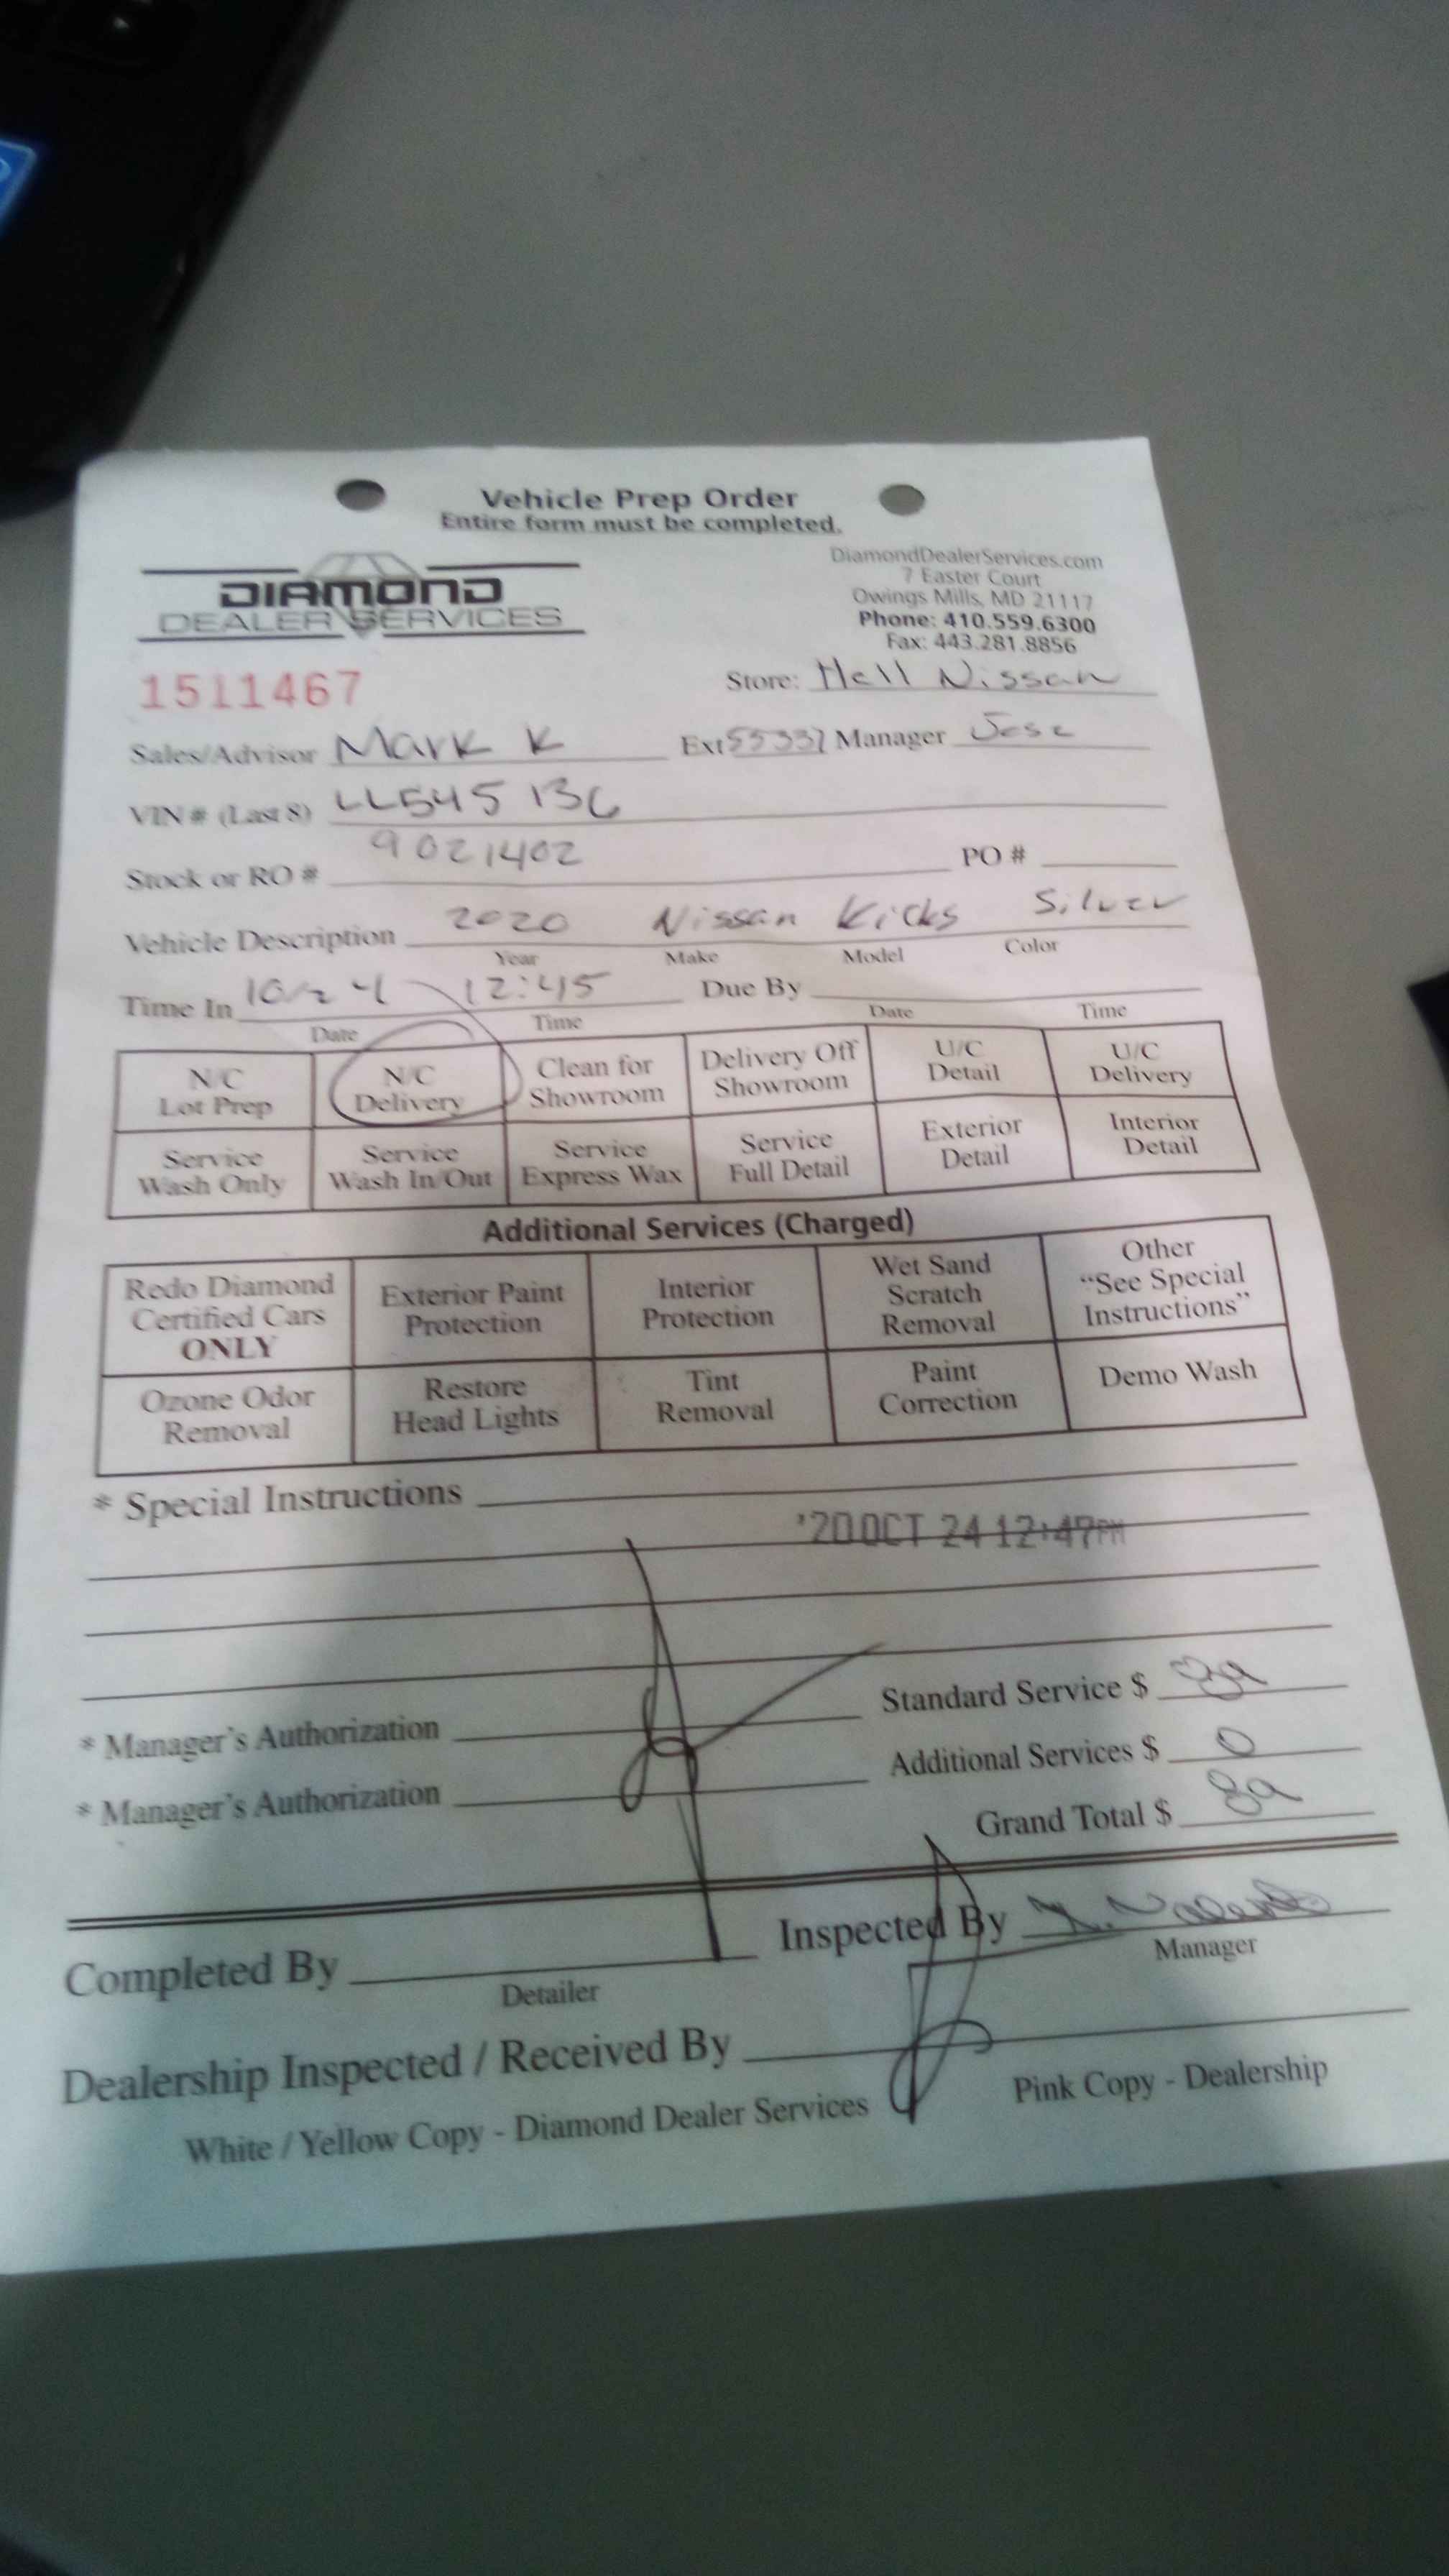 Vehicle Prep Order
Entire form must be completed.
DIAMOND
DEALER SERVICES
DiamondDealerServices.com
7 Easter Court
Owings Mills, MD 21117
Phone: 410.559.6300
Fax: 443.281.8856
1511467
Store: Hell Nissan
Sales/Advisor Mark K Ext 55337 Manager Jose
VIN # (Last 8) LL545136
Stock or RO # 9021402 PO #
Vehicle Description 2020 Nissan Kicks Silver
Year Make Model Color
Time In 10/24 12:45 Due By
Date Time Date Time
N/C Lot Prep
N/C Delivery
Clean for Showroom
Delivery Off Showroom
U/C Detail
U/C Delivery
Service Wash Only
Service Wash In/Out
Service Express Wax
Service Full Detail
Exterior Detail
Interior Detail
Additional Services (Charged)
Redo Diamond Certified Cars ONLY
Exterior Paint Protection
Interior Protection
Wet Sand Scratch Removal
Other "See Special Instructions"
Ozone Odor Removal
Restore Head Lights
Tint Removal
Paint Correction
Demo Wash
* Special Instructions
'20 OCT 24 12:47PM
* Manager's Authorization
Standard Service $
* Manager's Authorization
Additional Services $ 0
Grand Total $
Completed By
Detailer
Inspected By
Manager
Dealership Inspected / Received By
White / Yellow Copy - Diamond Dealer Services
Pink Copy - Dealership